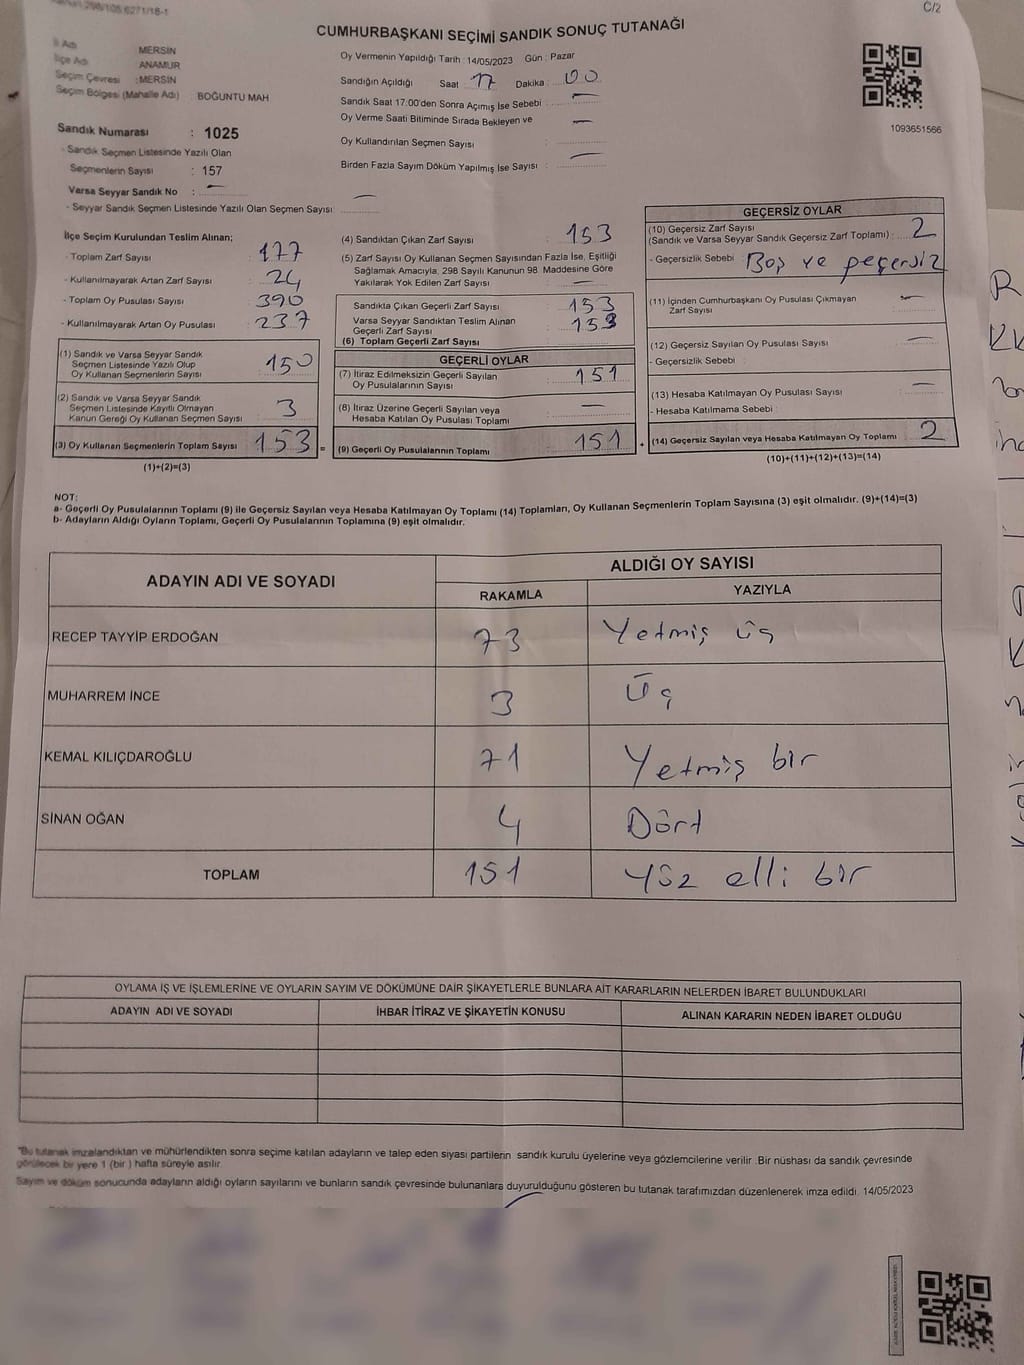 C/2
CUMHURBAŞKANI SEÇİMİ SANDIK SONUÇ TUTANAĞI
İl Adı MERSİN
İlçe Adı ANAMUR
Seçim Çevresi :MERSİN
Seçim Bölgesi (Mahalle Adı) : BOĞUNTU MAH
Sandık Numarası : 1025
- Sandık Seçmen Listesinde Yazılı Olan
Seçmenlerin Sayısı : 157
Varsa Seyyar Sandık No : —
- Seyyar Sandık Seçmen Listesinde Yazılı Olan Seçmen Sayısı : —
Oy Vermenin Yapıldığı Tarih : 14/05/2023 Gün : Pazar
Sandığın Açıldığı Saat 17 Dakika : 00
Sandık Saat 17:00'den Sonra Açımış İse Sebebi : —
Oy Verme Saati Bitiminde Sırada Bekleyen ve —
Oy Kullandırılan Seçmen Sayısı :
Birden Fazla Sayım Döküm Yapılmış İse Sayısı : —
1093651566
İlçe Seçim Kurulundan Teslim Alınan;
- Toplam Zarf Sayısı : 177
- Kullanılmayarak Artan Zarf Sayısı : 24
- Toplam Oy Pusulası Sayısı : 390
- Kullanılmayarak Artan Oy Pusulası : 237
(1) Sandık ve Varsa Seyyar Sandık
Seçmen Listesinde Yazılı Olup
Oy Kullanan Seçmenlerin Sayısı : 150
(2) Sandık ve Varsa Seyyar Sandık
Seçmen Listesinde Kayıtlı Olmayan
Kanun Gereği Oy Kullanan Seçmen Sayısı : 3
(3) Oy Kullanan Seçmenlerin Toplam Sayısı : 153 =
(1)+(2)=(3)
(4) Sandıktan Çıkan Zarf Sayısı : 153
(5) Zarf Sayısı Oy Kullanan Seçmen Sayısından Fazla İse, Eşitliği
Sağlamak Amacıyla, 298 Sayılı Kanunun 98. Maddesine Göre
Yakılarak Yok Edilen Zarf Sayısı : —
Sandıkta Çıkan Geçerli Zarf Sayısı : 153
Varsa Seyyar Sandıktan Teslim Alınan
Geçerli Zarf Sayısı : 153
(6) Toplam Geçerli Zarf Sayısı :
GEÇERLİ OYLAR
(7) İtiraz Edilmeksizin Geçerli Sayılan
Oy Pusulalarının Sayısı : 151
(8) İtiraz Üzerine Geçerli Sayılan veya
Hesaba Katılan Oy Pusulaları Toplamı : —
(9) Geçerli Oy Pusulalarının Toplamı : 151 +
GEÇERSİZ OYLAR
(10) Geçersiz Zarf Sayısı
(Sandık ve Varsa Seyyar Sandık Geçersiz Zarf Toplamı) : 2
- Geçersizlik Sebebi : Boş ve geçersiz
(11) İçinden Cumhurbaşkanı Oy Pusulası Çıkmayan
Zarf Sayısı : —
(12) Geçersiz Sayılan Oy Pusulası Sayısı : —
- Geçersizlik Sebebi :
(13) Hesaba Katılmayan Oy Pusulası Sayısı : —
- Hesaba Katılmama Sebebi :
(14) Geçersiz Sayılan veya Hesaba Katılmayan Oy Toplamı : 2
(10)+(11)+(12)+(13)=(14)
NOT:
a- Geçerli Oy Pusulalarının Toplamı (9) ile Geçersiz Sayılan veya Hesaba Katılmayan Oy Toplamı (14) Toplamları, Oy Kullanan Seçmenlerin Toplam Sayısına (3) eşit olmalıdır. (9)+(14)=(3)
b- Adayların Aldığı Oyların Toplamı, Geçerli Oy Pusulalarının Toplamına (9) eşit olmalıdır.
ADAYIN ADI VE SOYADI
ALDIĞI OY SAYISI
RAKAMLA YAZIYLA
RECEP TAYYİP ERDOĞAN 73 Yetmiş üç
MUHARREM İNCE 3 Üç
KEMAL KILIÇDAROĞLU 71 Yetmiş bir
SİNAN OĞAN 4 Dört
TOPLAM 151 Yüz elli bir
OYLAMA İŞ VE İŞLEMLERİNE VE OYLARIN SAYIM VE DÖKÜMÜNE DAİR ŞİKAYETLERLE BUNLARA AİT KARARLARIN NELERDEN İBARET BULUNDUKLARI
ADAYIN ADI VE SOYADI İHBAR İTİRAZ VE ŞİKAYETİN KONUSU ALINAN KARARIN NEDEN İBARET OLDUĞU
*Bu tutanak imzalandıktan ve mühürlendikten sonra seçime katılan adayların ve talep eden siyasi partilerin sandık kurulu üyelerine veya gözlemcilerine verilir. Bir nüshası da sandık çevresinde
görülecek bir yere 1 (bir ) hafta süreyle asılır.
Sayım ve döküm sonucunda adayların aldığı oyların sayılarını ve bunların sandık çevresinde bulunanlara duyurulduğunu gösteren bu tutanak tarafımızdan düzenlenerek imza edildi. 14/05/2023